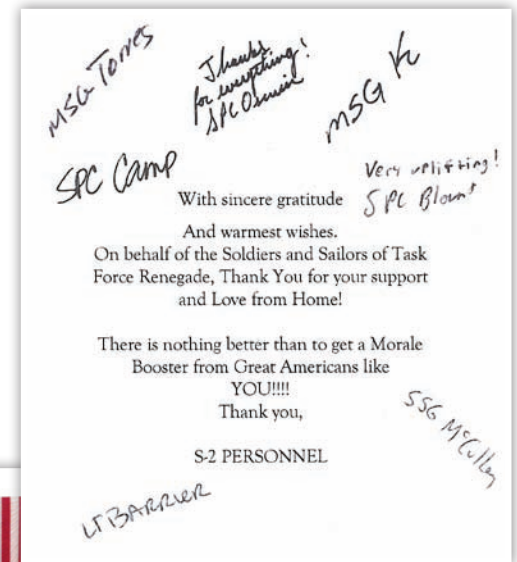 MSG Torres
Thanks
for everything!
SPC
MSG K
SPC Camp
Very uplifting!
SPC Blount
With sincere gratitude
And warmest wishes.
On behalf of the Soldiers and Sailors of Task
Force Renegade, Thank You for your support
and Love from Home!
There is nothing better than to get a Morale
Booster from Great Americans like
YOU!!!!
Thank you,
SSG McCulley
S-2 PERSONNEL
LT BARRIER